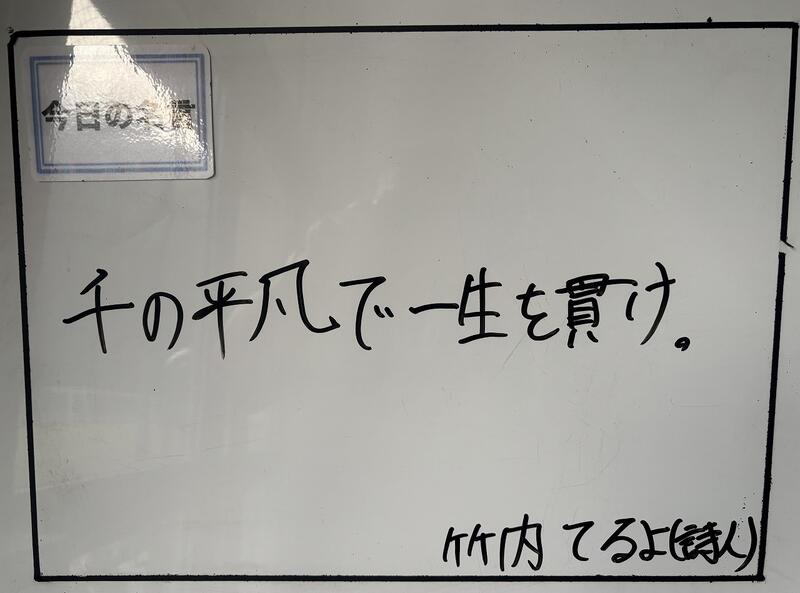 今日の名言
千の平凡で一生を貫け。
竹内てるよ(詩人)